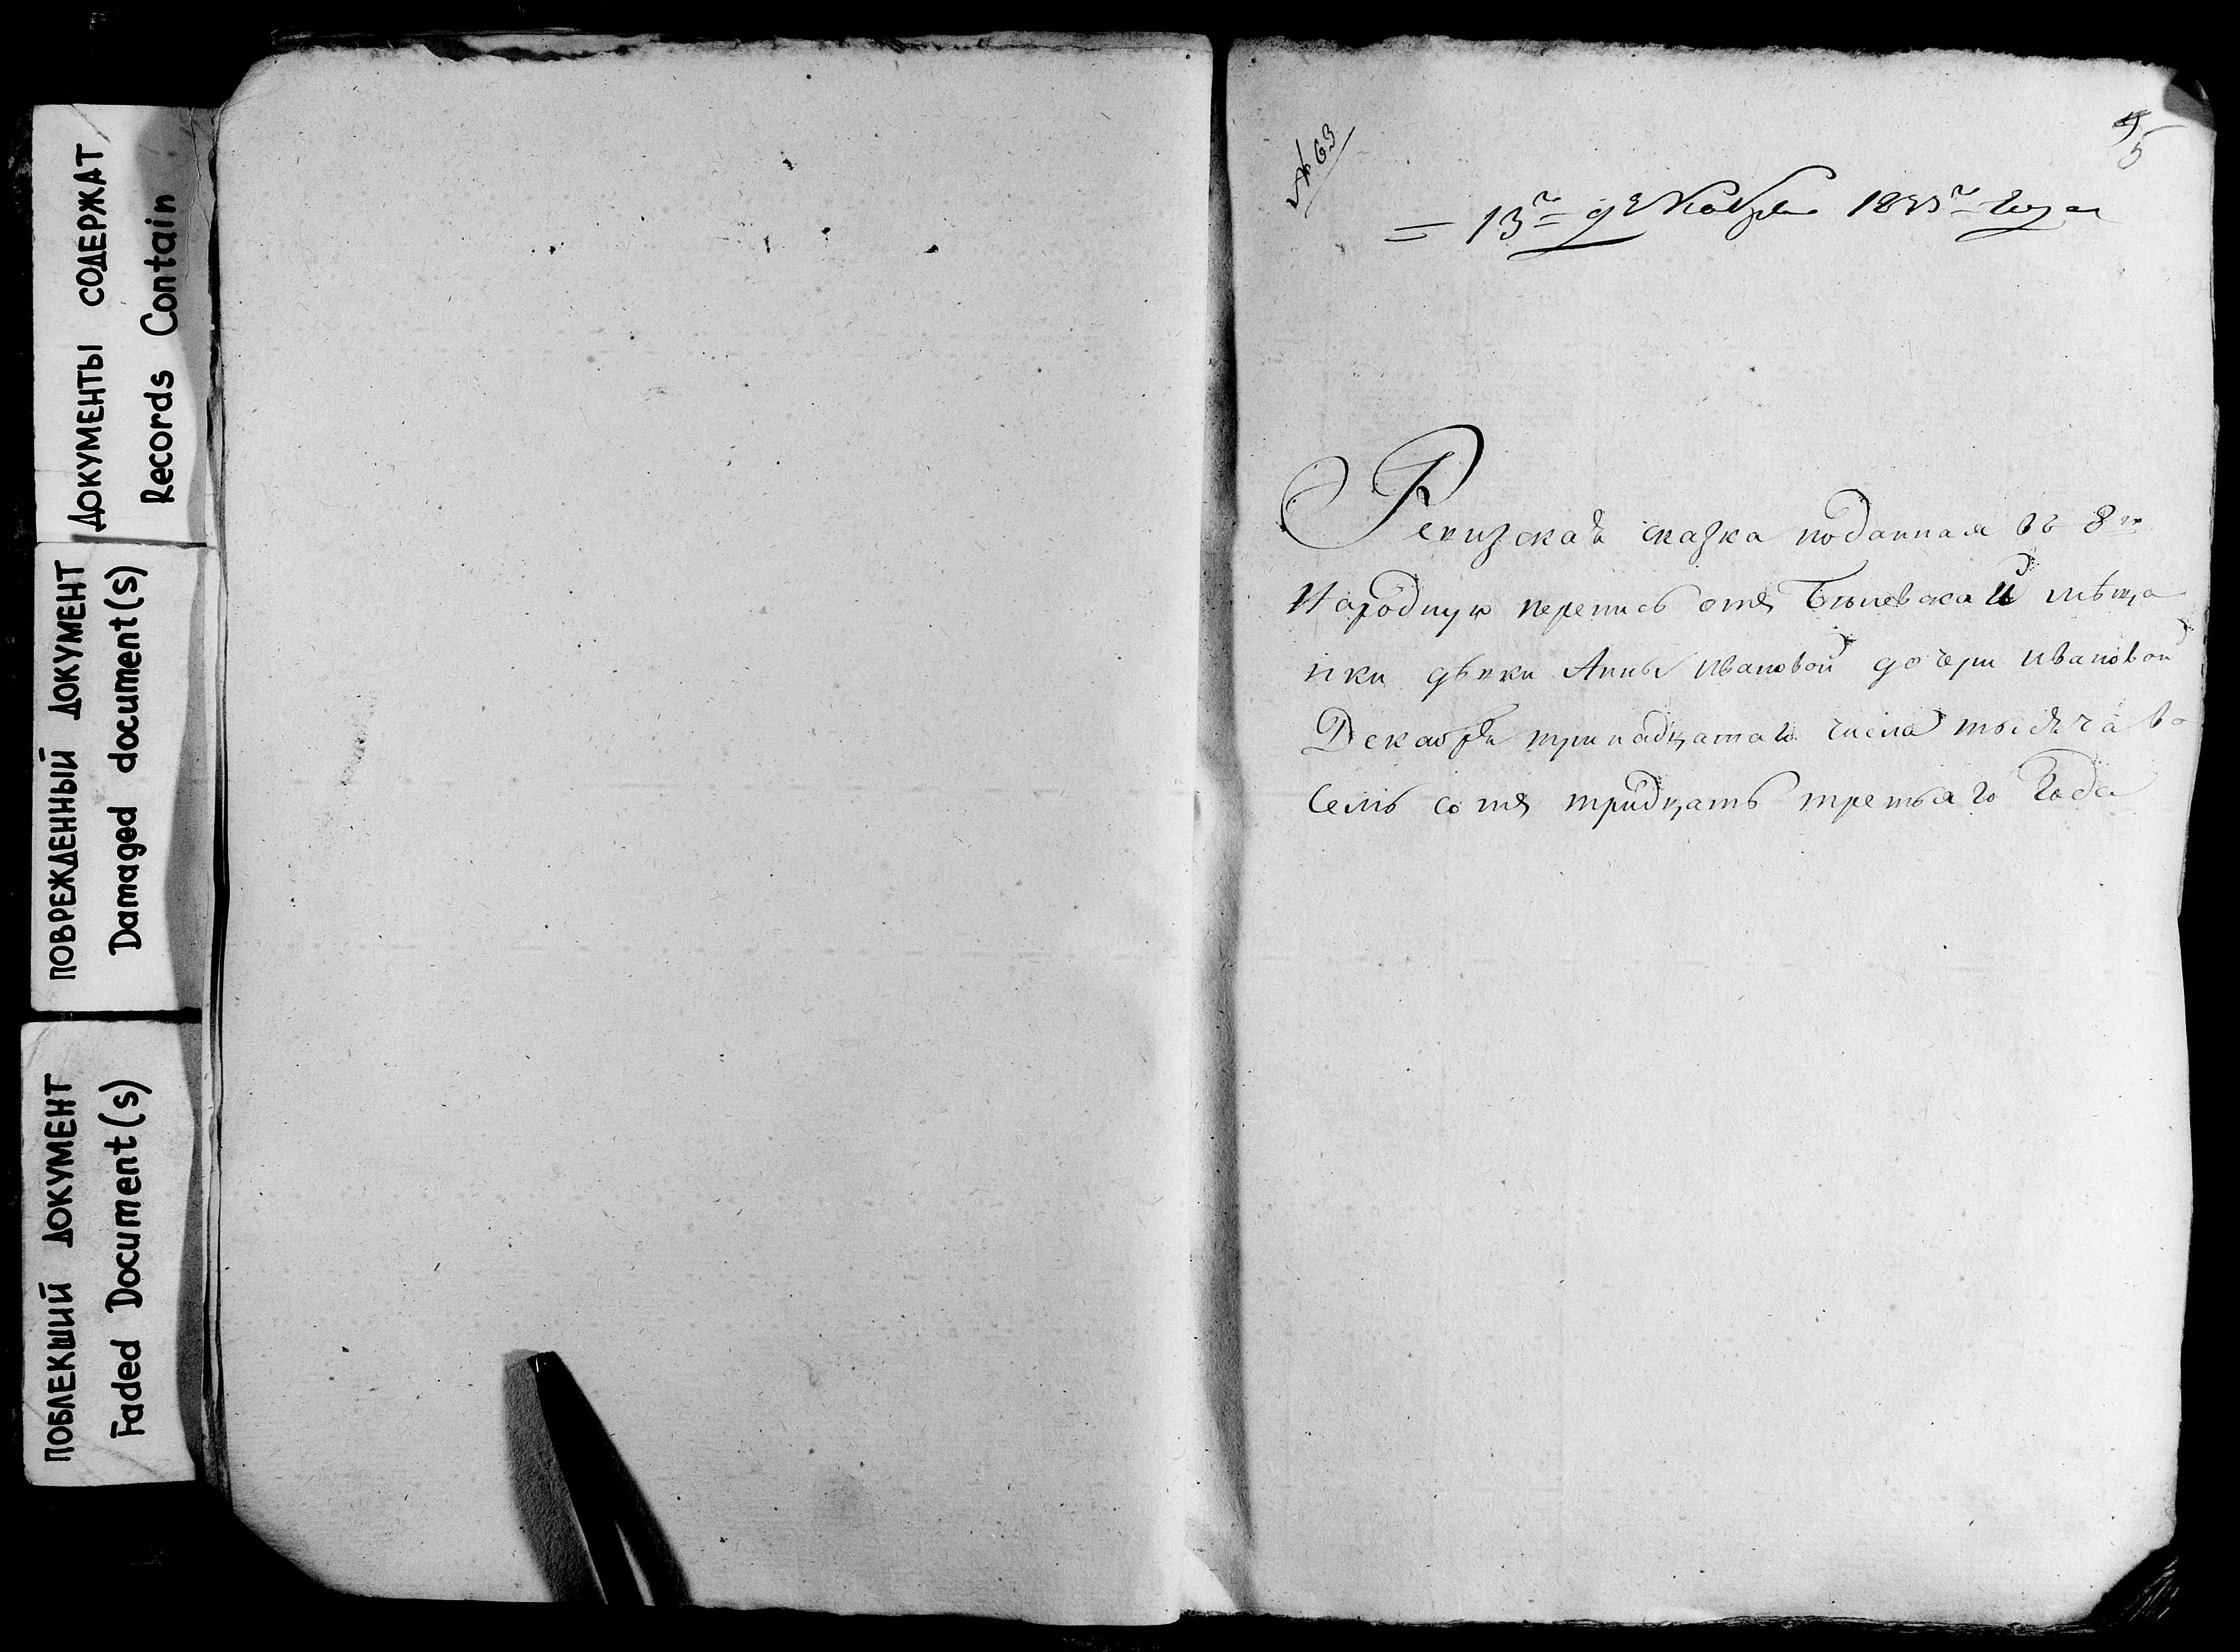 ДОКУМЕНТЫ СОДЕРЖАТ
Records Contain
ПОВРЕЖДЕННЫЙ ДОКУМЕНТ
Damaged document(s)
ПОБЛЕКШИЙ ДОКУМЕНТ
Faded Document(s)
№ 63
5
= 13го декабря 1833го года
Ревизская сказка поданная въ 8ю
Народную перепись отъ Бѣлевской мѣща
нки дѣвки Анны Ивановой дочери Ивановой
Декабря тринадцатаго числа тысяча во
семь сотъ тридцать третьяго Года